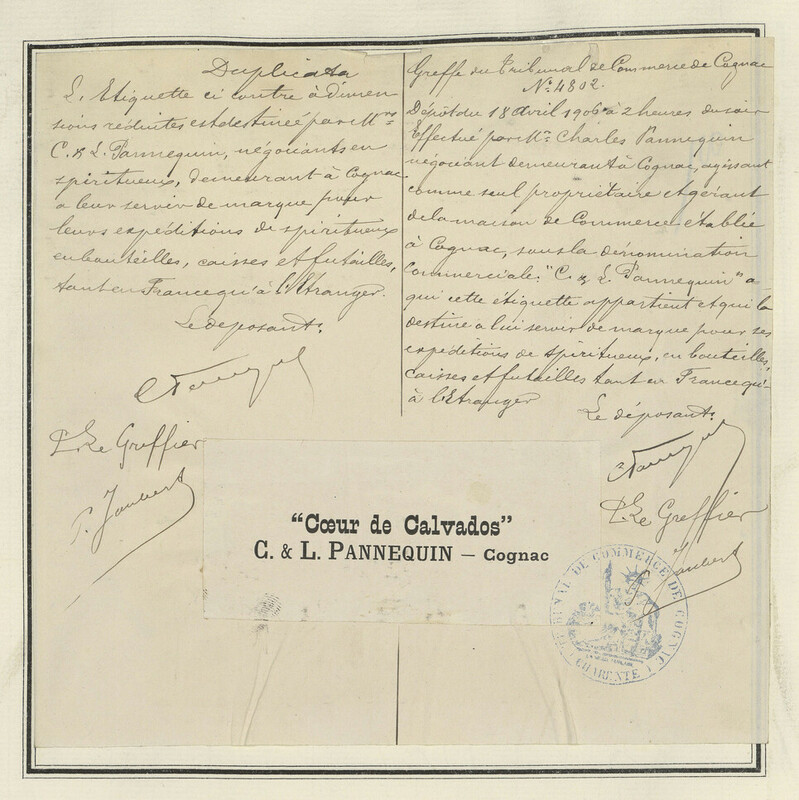 Duplicata
L'Etiquette ci contre à dimen
sions réduites est destinée par Mrs
C. & L. Pannequin, négociants en
spiritueux, demeurant à Cognac
a leur servir de marque pour
leurs expéditions de spiritueux
en bouteilles, caisses et futailles,
tant en France qu'à l'Etranger.
Le déposant:
P. Le Greffier
P. Joubert
Greffe du Tribunal de Commerce de Cognac
No. 4802.
Dépôt du 18 Avril 1906 à 2 heures du soir
Effectué par Mr. Charles Pannequin
négociant demeurant à Cognac, agissant
comme seul propriétaire et gérant
de la maison de Commerce établie
à Cognac, sous la dénomination
Commerciale: "C. & L. Pannequin" a
qui cette étiquette appartient et qui la
destine a lui servir de marque pour ses
expéditions de spiritueux, en bouteilles,
caisses et futailles tant en France qu'-
à l'Etranger
Le déposant:
P. Le Greffier
P. Joubert
"Cœur de Calvados"
C. & L. PANNEQUIN — Cognac
TRIBUNAL DE COMMERCE DE COGNAC
CHARENTE